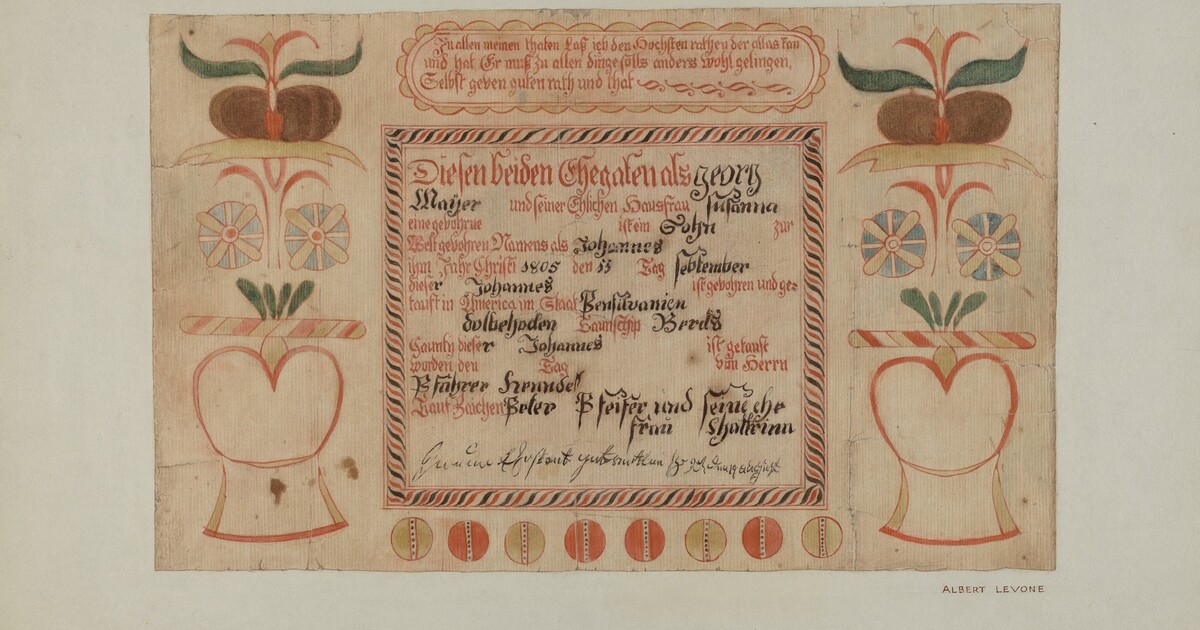 In allen meinen thaten Laß ich den Hochsten rathen der allas kan
und hat Er muß zu allen dinge sölls anders wohl gelingen,
Selbst geven guten rath und that
Diesen beiden Ehegaten als georg
Mayer und seiner Ehlichen Hausfrau susanna
eine gebohrne ist ein Sohn zur
Welt gebohren Namens als Johannes
ihm Jahr Christi 1805 den 15 Tag september
dieser Johannes ist gebohren und ge=
tauft in America im Staat Pensilvanien
dolbehoden Taunschip Berds
Caunty dieser Johannes ist getauft
worden den Tag von Herrn
Pfahrer
Tauf Zaichen Peter Pfeifer und seine ehe
frau
ALBERT LEVONE